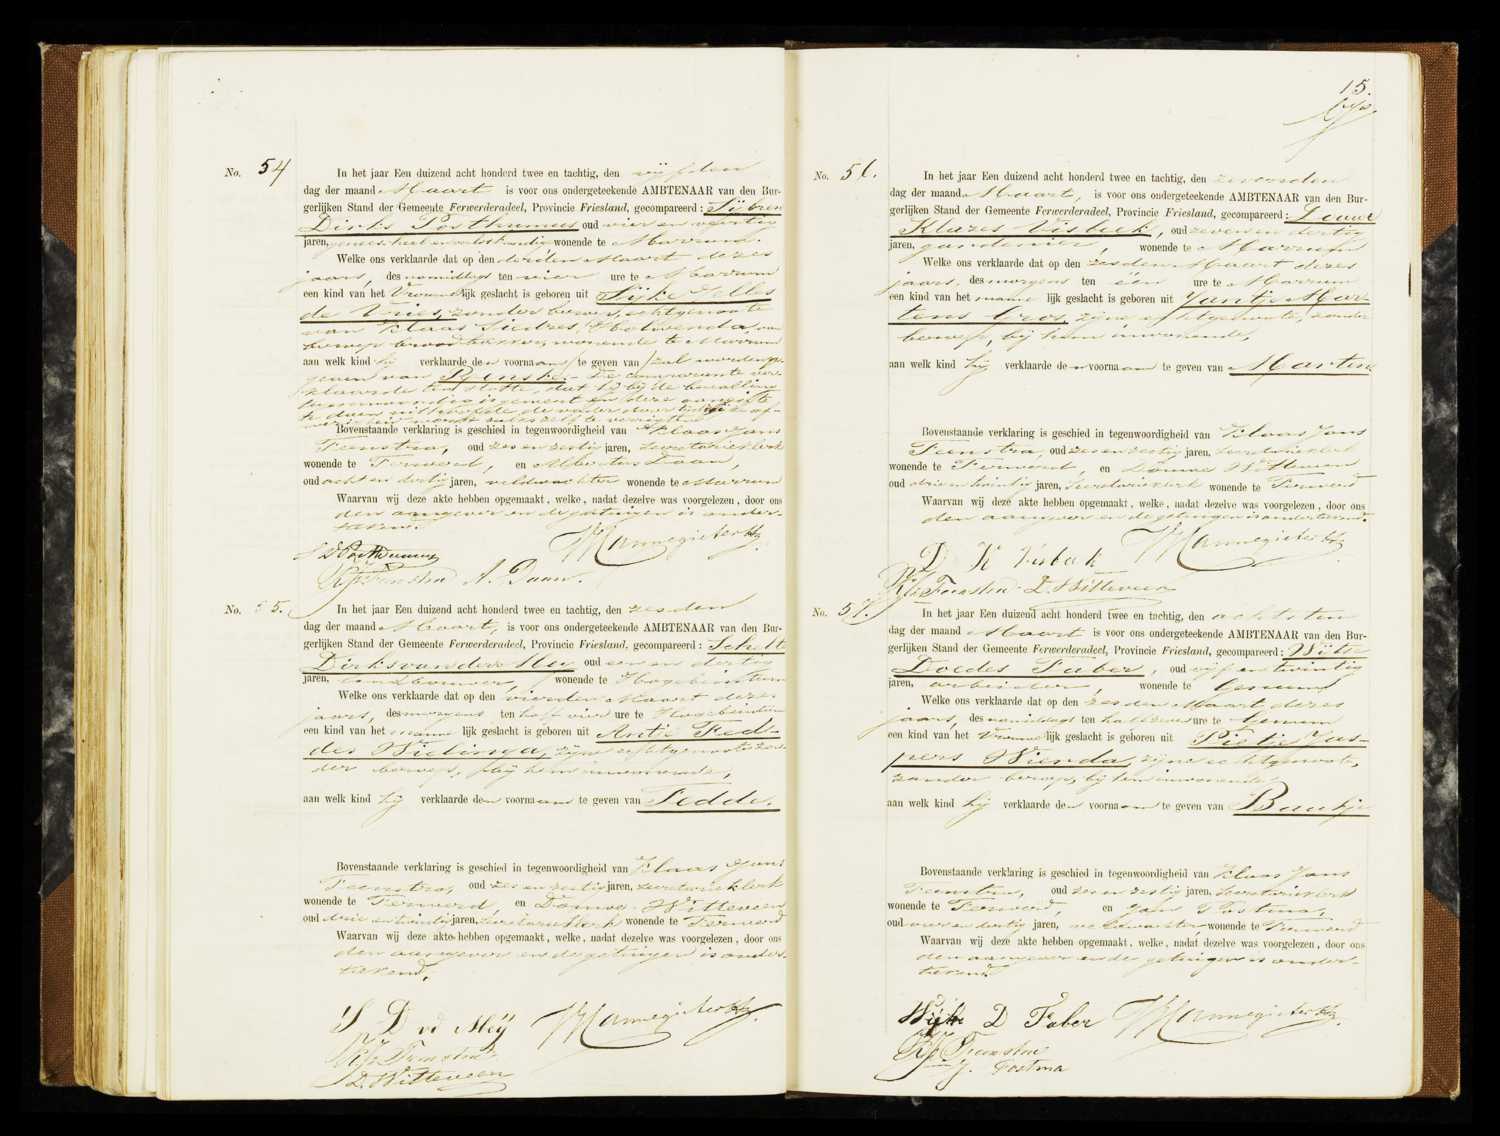 No. 54
In het jaar Een duizend acht honderd twee en tachtig, den vijfden
dag der maand Maart is voor ons ondergeteekende AMBTENAAR van den Bur-
gerlijken Stand der Gemeente Ferwerderadeel, Provincie Friesland, gecompareerd: Sijbren
Dirks Posthumus oud vier en veertig
jaren, genees, heel en verloskundige wonende te Marrum.
Welke ons verklaarde dat op den derden Maart dezes
jaars, des namiddags ten vier ure te Marrum
een kind van het Vrouwelijk geslacht is geboren uit Sijke Jelles
de Vries, zonder beroep, echtgenoote
van Klaas Sierds Holwerda, van
beroep broodbakker, wonende te Marrum
aan welk kind hij verklaarde den voornaam te geven van / zal worden ge-
geven van Rjinske. De comparante ver-
klaarde ten slotte, dat hij bij de bevalling
tegenwoordig is geweest en deze aangifte
te doen uit hoofde de vader daartoe
Bovenstaande verklaring is geschied in tegenwoordigheid van Klaas Jans
Feenstra, oud zes en zestig jaren, Secretarieklerk
wonende te Ferwerd, en Albertus Daan,
oud acht en dertig jaren, veldwachter wonende te Marrum
Waarvan wij deze akte hebben opgemaakt, welke, nadat dezelve was voorgelezen, door ons
den aangever en de getuigen is onder-
teekend.
S D Posthumus
Kannegieter
KJ Feenstra A. Daan.
No. 55.
In het jaar Een duizend acht honderd twee en tachtig, den zesden
dag der maand Maart, is voor ons ondergeteekende AMBTENAAR van den Bur-
gerlijken Stand der Gemeente Ferwerderadeel, Provincie Friesland, gecompareerd: Schelte
Dirks van der Meij oud een en dertig
jaren, landbouwer, wonende te Hogebeintum
Welke ons verklaarde dat op den vierden Maart dezes
jaars, des morgens ten half vier ure te Hogebeintum
een kind van het manne lijk geslacht is geboren uit Antje Fed-
des Wielinga, zijne echtgenoote zon-
der beroep, bij hem inwonende,
aan welk kind hij verklaarde den voornaam te geven van Fedde.
Bovenstaande verklaring is geschied in tegenwoordigheid van Klaas Jans
Feenstra, oud zes en zestig jaren, Secretarieklerk
wonende te Ferwerd en Douwe Witteveen
oud drie en twintig jaren, Secretarieklerk wonende te Ferwerd
Waarvan wij deze akte hebben opgemaakt, welke, nadat dezelve was voorgelezen, door ons
den aangever en de getuigen is onder-
teekend.
S D vd Meij Kannegieter
KJ Feenstra
D. Witteveen
15.
No. 56.
In het jaar Een duizend acht honderd twee en tachtig, den zevenden
dag der maand Maart, is voor ons ondergeteekende AMBTENAAR van den Bur-
gerlijken Stand der Gemeente Ferwerderadeel, Provincie Friesland, gecompareerd: Douwe
Klazes Visbeek, oud zeven en dertig
jaren, gardenier, wonende te Marrum
Welke ons verklaarde dat op den zesden Maart dezes
jaars, des morgens ten één ure te Marrum
een kind van het manne lijk geslacht is geboren uit Jantje Mar-
tens Gros, zijne echtgenoote, zonder
beroep, bij hem inwonende,
aan welk kind hij verklaarde den voornaam te geven van Marten
Bovenstaande verklaring is geschied in tegenwoordigheid van Klaas Jans
Feenstra, oud zes en zestig jaren, Secretarieklerk
wonende te Ferwerd, en Douwe Witteveen
oud drie en twintig jaren, Secretarieklerk wonende te Ferwerd
Waarvan wij deze akte hebben opgemaakt, welke, nadat dezelve was voorgelezen, door ons
den aangever en de getuigen is onderteekend.
D K Visbeek Kannegieter
KJ Feenstra D. Witteveen
No. 57.
In het jaar Een duizend acht honderd twee en tachtig, den achtsten
dag der maand Maart is voor ons ondergeteekende AMBTENAAR van den Bur-
gerlijken Stand der Gemeente Ferwerderadeel, Provincie Friesland, gecompareerd: Wijtse
Doedes Faber, oud vijf en twintig
jaren, arbeider, wonende te Genum
Welke ons verklaarde dat op den zesden Maart dezes
jaars, des namiddags ten half zeven ure te Genum
een kind van het Vrouwelijk geslacht is geboren uit Pietje Jas-
pers Wienda, zijne echtgenoote,
zonder beroep, bij hem inwonende
aan welk kind hij verklaarde den voornaam te geven van Baukje
Bovenstaande verklaring is geschied in tegenwoordigheid van Klaas Jans
Feenstra, oud zes en zestig jaren, Secretarieklerk
wonende te Ferwerd, en Jans Postma,
oud vier en dertig jaren, veldwachter wonende te Ferwerd
Waarvan wij deze akte hebben opgemaakt, welke, nadat dezelve was voorgelezen, door ons
den aangever en de getuigen is onder-
teekend.
Wijtse D Faber Kannegieter
KJ Feenstra
J. Postma